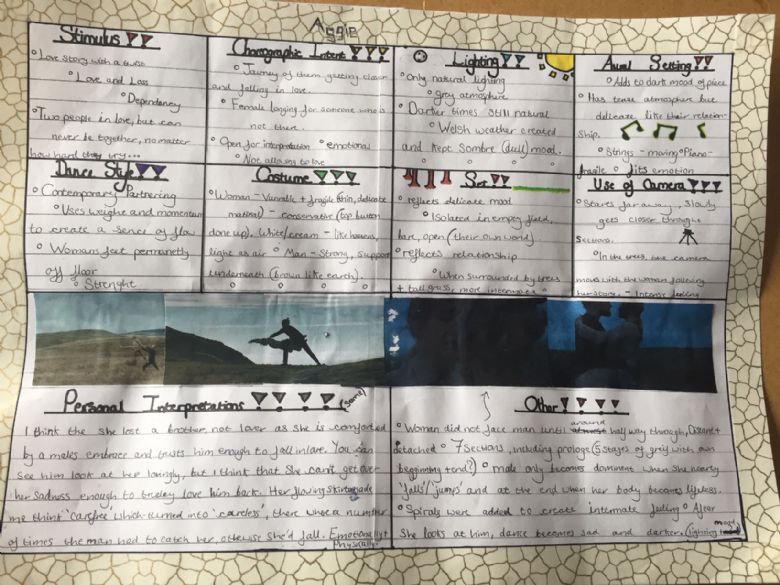 Aggie
Stimulus
Love story with a twist
Love and Loss
Dependancy
Two people in love, but can
never be together, no matter
how hard they try...
Choreographic Intent
Journey of them getting closer
and falling in love.
Female longing for someone who is
not there.
Open for interpretation emotional
Not allowing to love
Lighting
Only natural lighting
Grey atmosphere
Darker times still natural
Welsh weather created
and kept sombre (dull) mood.
Aural Setting
Adds to dark mood of piece
Has tense atmosphere but
delicate like their relation-
ship.
Strings - moving Piano-
fragile fits emotion
Dance Style
Contemporary Partnering
Uses weight and momentum
to create a sence of flow
Womans feet permanetly
off floor
Strenght
Costume
Woman - Vunrable + fragile (thin, delicate
material) - conservative (top button
done up). White/cream - like heaven,
light as air Man - Strong, support
underneath (brown like earth).
Set
reflects delicate mood
Isolated in empty field,
bare, open (their own world)
reflects relationship
When surrounded by trees
+ tall grass, more intense
Use of Camera
Stares far away, slowly
gets closer through
sections.
In the trees, the camera
moves with the woman following
her - Intense feeling
Personal Interpretations (same)
I think the she lost a brother, not lover as she is comforted
by a males embrace and trusts him enough to fall in love. You can
see him look at her lovingly, but I think that she can't get over
her sadness enough to truley love him back. Her flowing skirt made
me think 'carefree' which turned into 'careless', there where a number
of times the man had to catch her, otherwise she'd fall. Emotionally +
Physically
Other
Woman did not face man until around half way through, Distant +
detached 7 sections, including prologe (5 stages of grief with own
beginning + end?) male only becomes dominant when she nearly
'falls'/'jumps' and at the end when her body becomes lifeless.
Spirals were added to create intermate feeling After
She looks at him, dance becomes sad and darker. (lighting + mood)